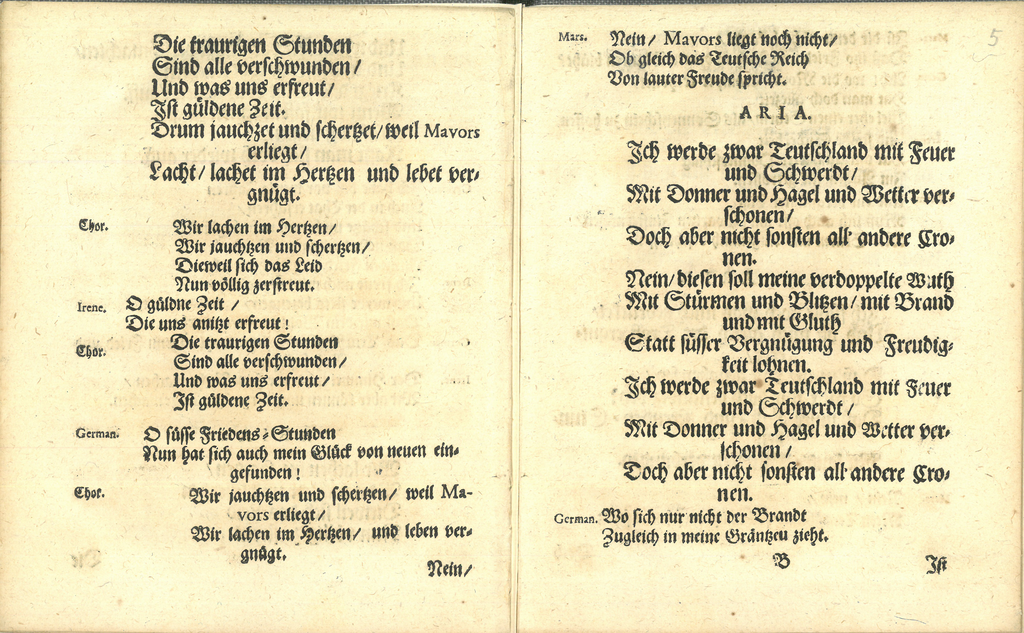 Die traurigen Stunden
Sind alle verschwunden/
Und was uns erfreut/
Ist güldene Zeit.
Drum jauchzet und schertzet/ weil Mavors
erliegt/
Lacht/ lachet im Hertzen und lebet ver-
gnügt.
Chor. Wir lachen im Hertzen/
Wir jauchtzen und schertzen/
Dieweil sich das Leid
Nun völlig zerstreut.
Irene. O güldne Zeit /
Die uns anitzt erfreut!
Chor. Die traurigen Stunden
Sind alle verschwunden/
Und was uns erfreut/
Ist güldene Zeit.
German. O süsse Friedens-Stunden
Nun hat sich auch mein Glück von neuen ein-
gefunden!
Chor. Wir jauchtzen und schertzen/ weil Ma-
vors erliegt/
Wir lachen im Hertzen/ und leben ver-
gnügt.
Nein/
5
Mars. Nein/ Mavors liegt noch nicht/
Ob gleich das Teutsche Reich
Von lauter Freude spricht.
ARIA.
Ich werde zwar Teutschland mit Feuer
und Schwerdt/
Mit Donner und Hagel und Wetter ver-
schonen/
Doch aber nicht sonsten all' andere Cro-
nen.
Nein/ diesen soll meine verdoppelte Wuth
Mit Stürmen und Blitzen/ mit Brand
und mit Gluth
Statt süsser Vergnügung und Freudig-
keit lohnen.
Ich werde zwar Teutschland mit Feuer
und Schwerdt/
Mit Donner und Hagel und Wetter ver-
schonen /
Doch aber nicht sonsten all' andere Cro-
nen.
German. Wo sich nur nicht der Brandt
Zugleich in meine Gräntzen zieht.
B Ist